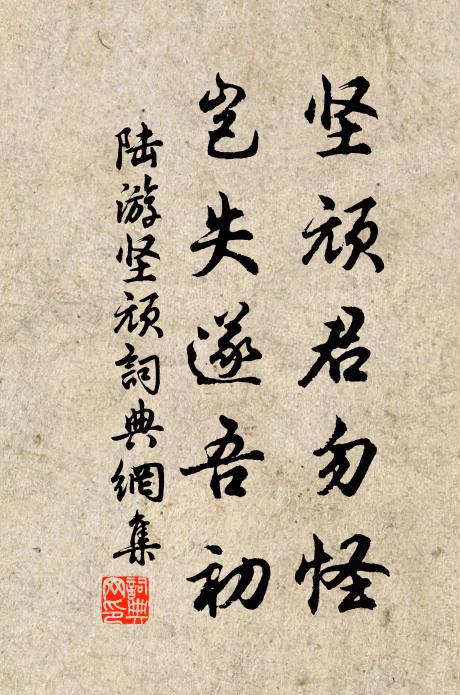 坚顽君勿怪
岂失遂吾初
陆游坚顽詞典網集
詞典网印